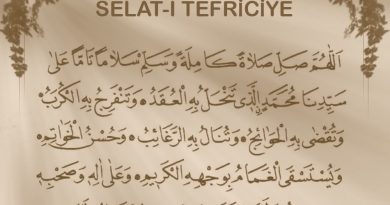 SELAT-I TEFRİCİYE
اَللّٰهُمَّ صَلِّ صَلَاةً كَامِلَةً وَسَلِّمْ سَلَامًا تَامًّا عَلٰى
سَيِّدِنَا مُحَمَّدٍ الَّذِى تَنْحَلُّ بِهِ الْعُقَدُ وَتَنْفَرِجُ بِهِ الْكُرَبُ
وَتُقْضٰى بِهِ الْحَوَائِجُ وَتُنَالُ بِهِ الرَّغَائِبُ وَحُسْنُ الْخَوَاتِمِ
وَيُسْتَسْقَى الْغَمَامُ بِوَجْهِهِ الْكَرِيمِ وَعَلٰى اٰلِهِ وَصَحْبِهِ